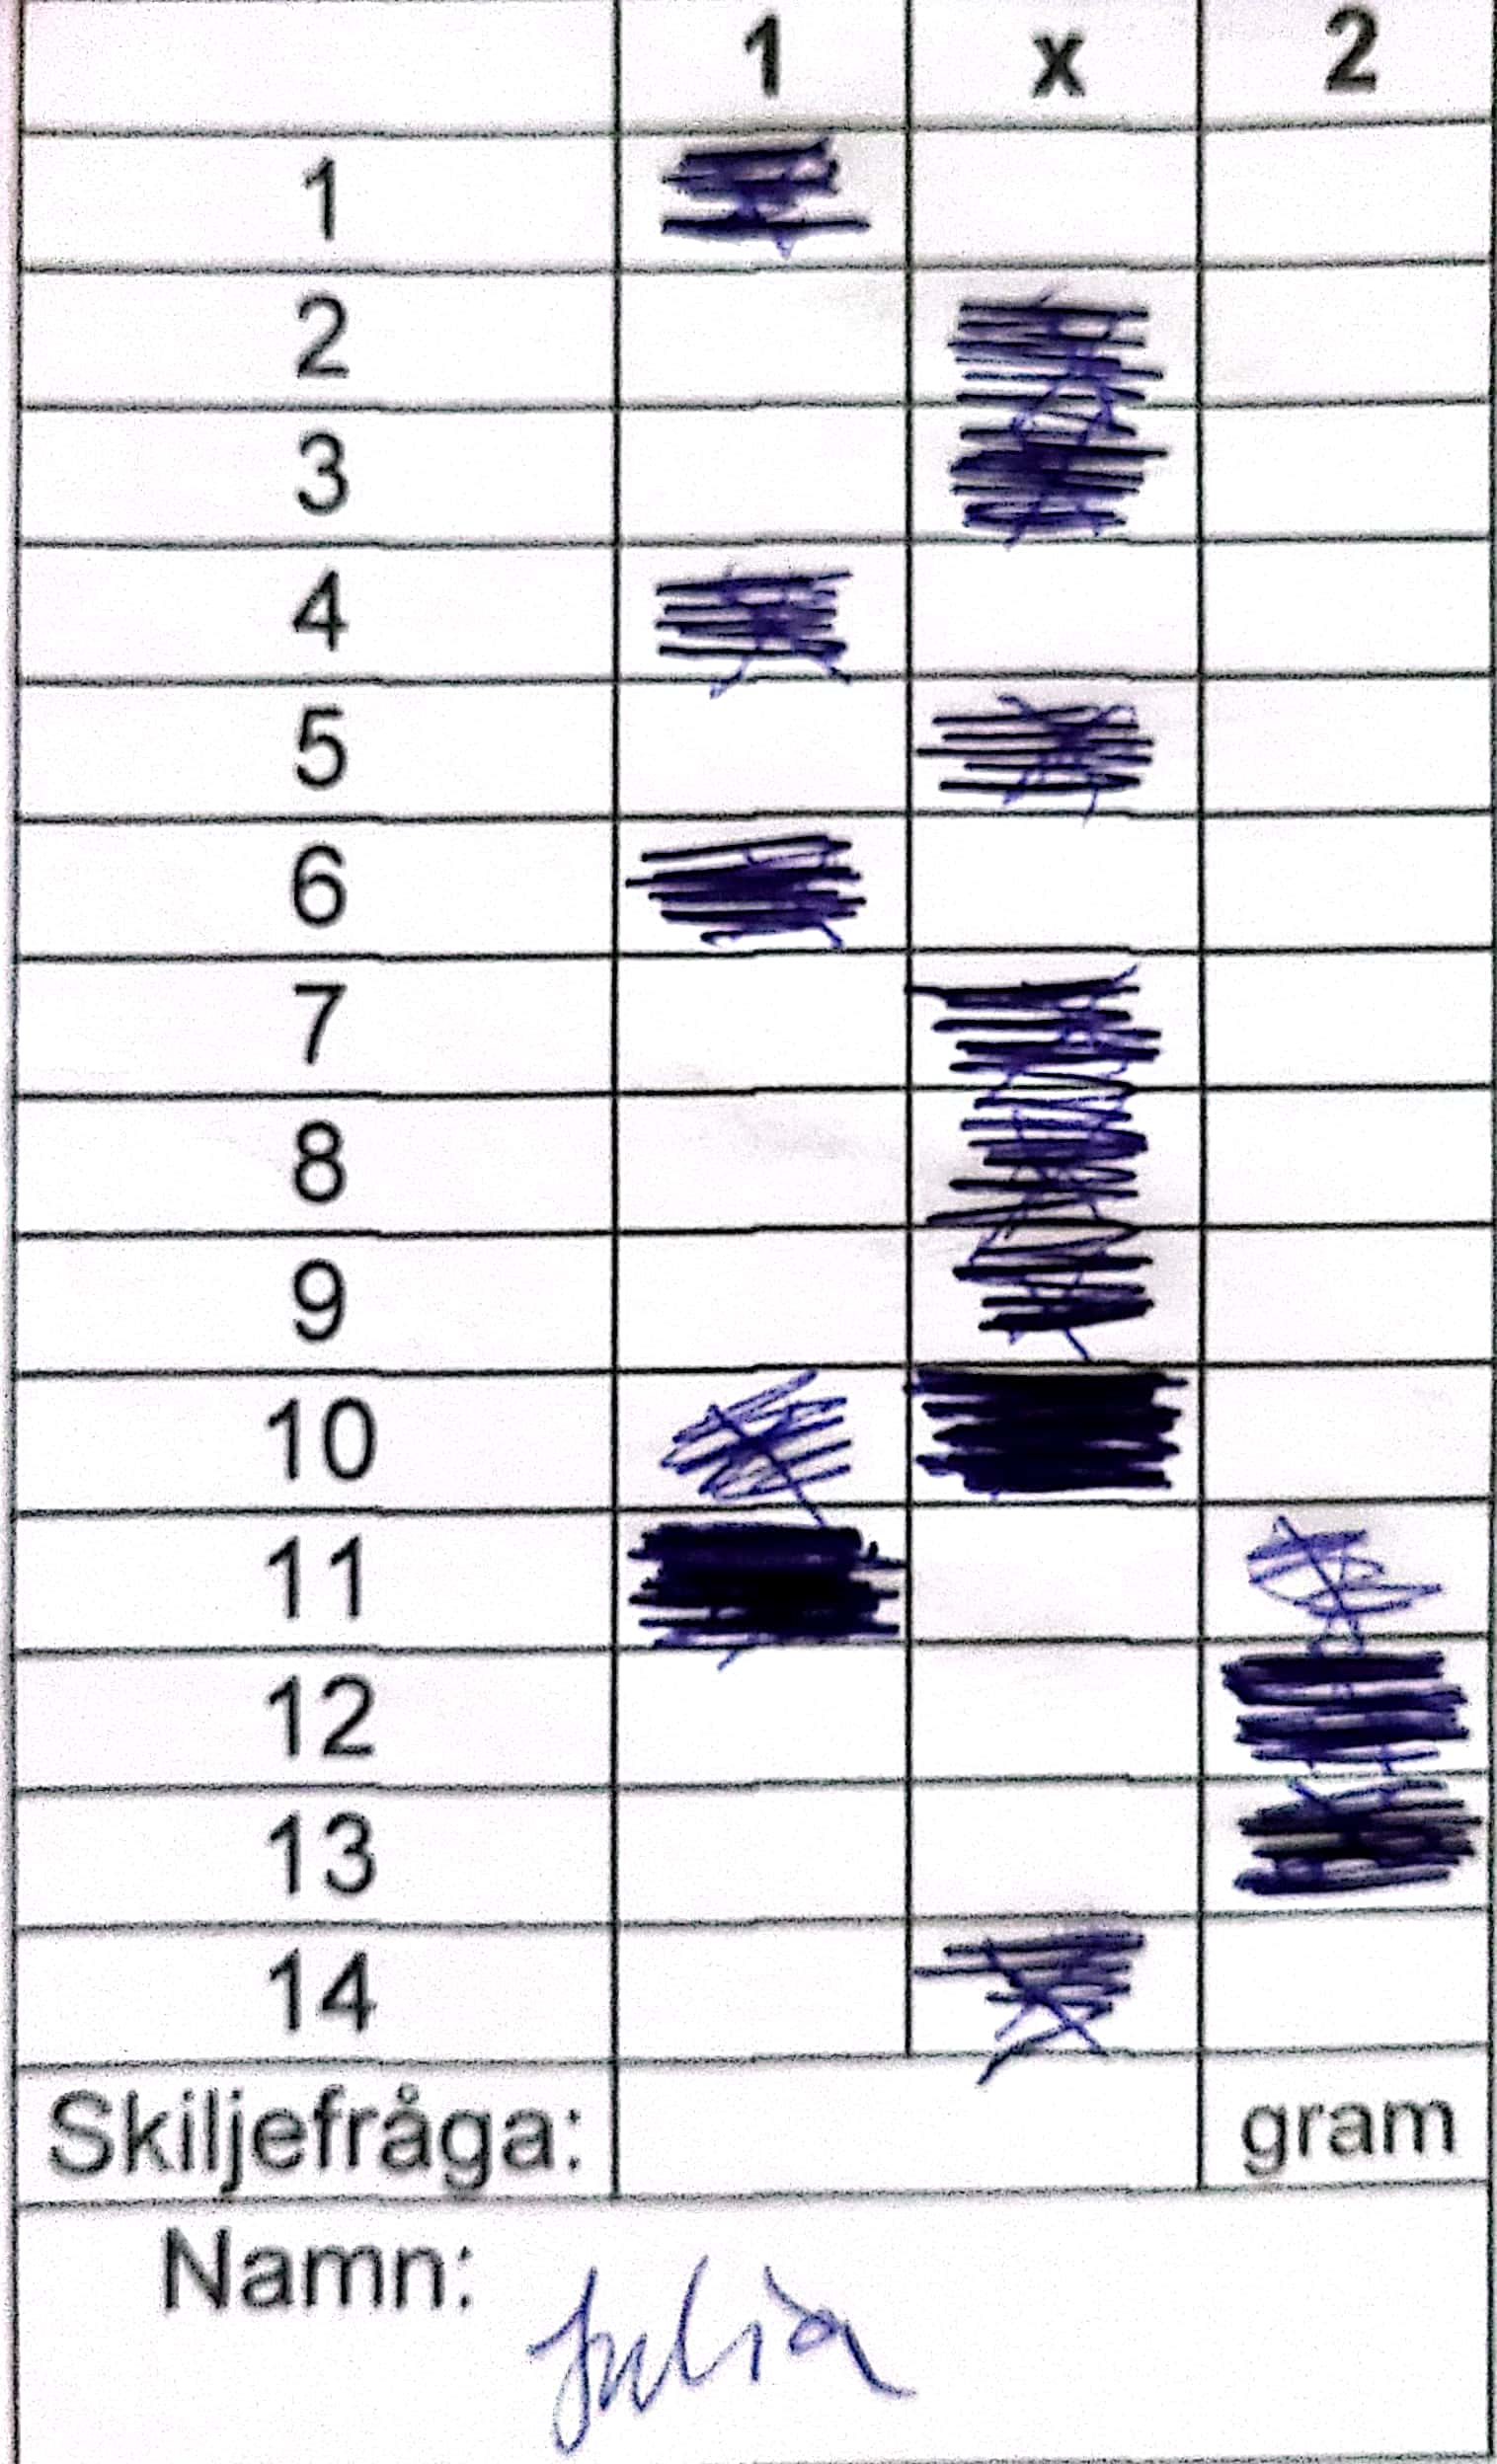 1 x 2
1
2
3
4
5
6
7
8
9
10
11
12
13
14
Skiljefråga: gram
Namn: Julia